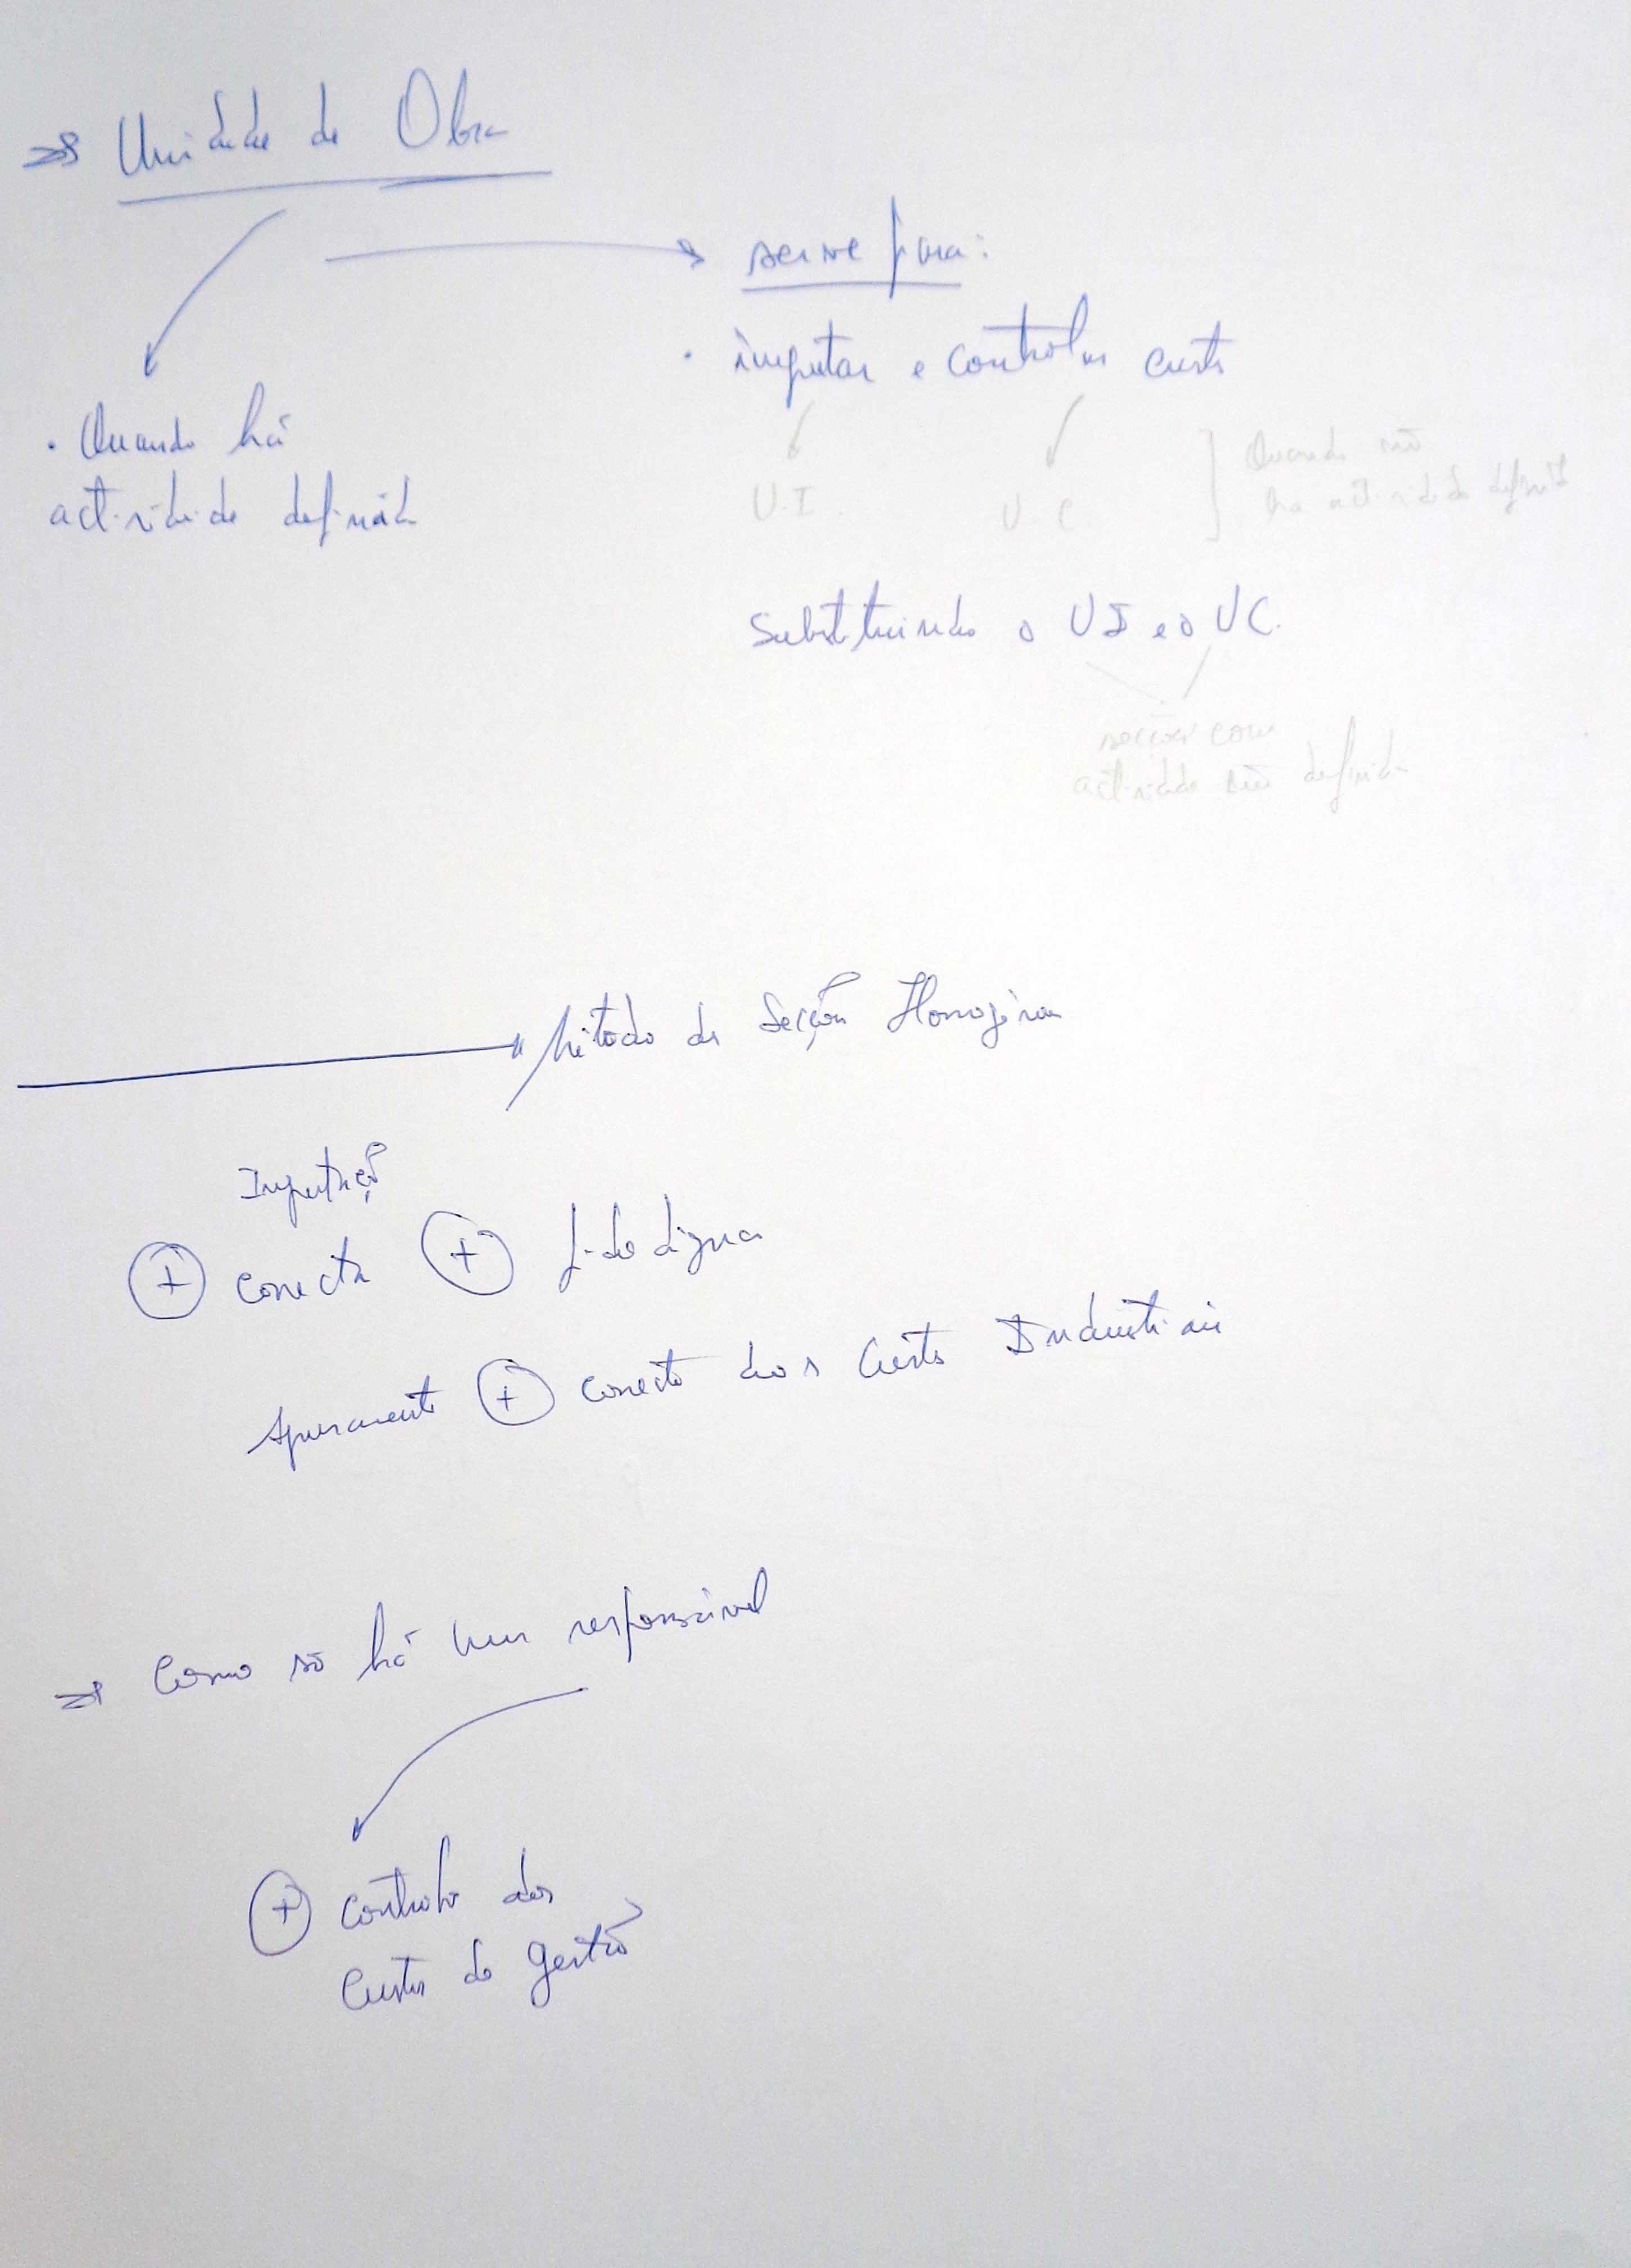 ⇒ Unidade de Obra
serve para:
• imputar e controlar custos
• Quando há
actividade definida
U.I.
U.C.
Quando não
ha actividade definid
Substituindo o UI e o UC.
secções com
actividade não definida
Método das Secções Homogéneas
Imputação
⊕ correcta ⊕ fidedigna
Apuramento ⊕ correcto dos Custos Industriais
⇒ Como só há um responsável
⊕ controlo dos
Custos de Gestão